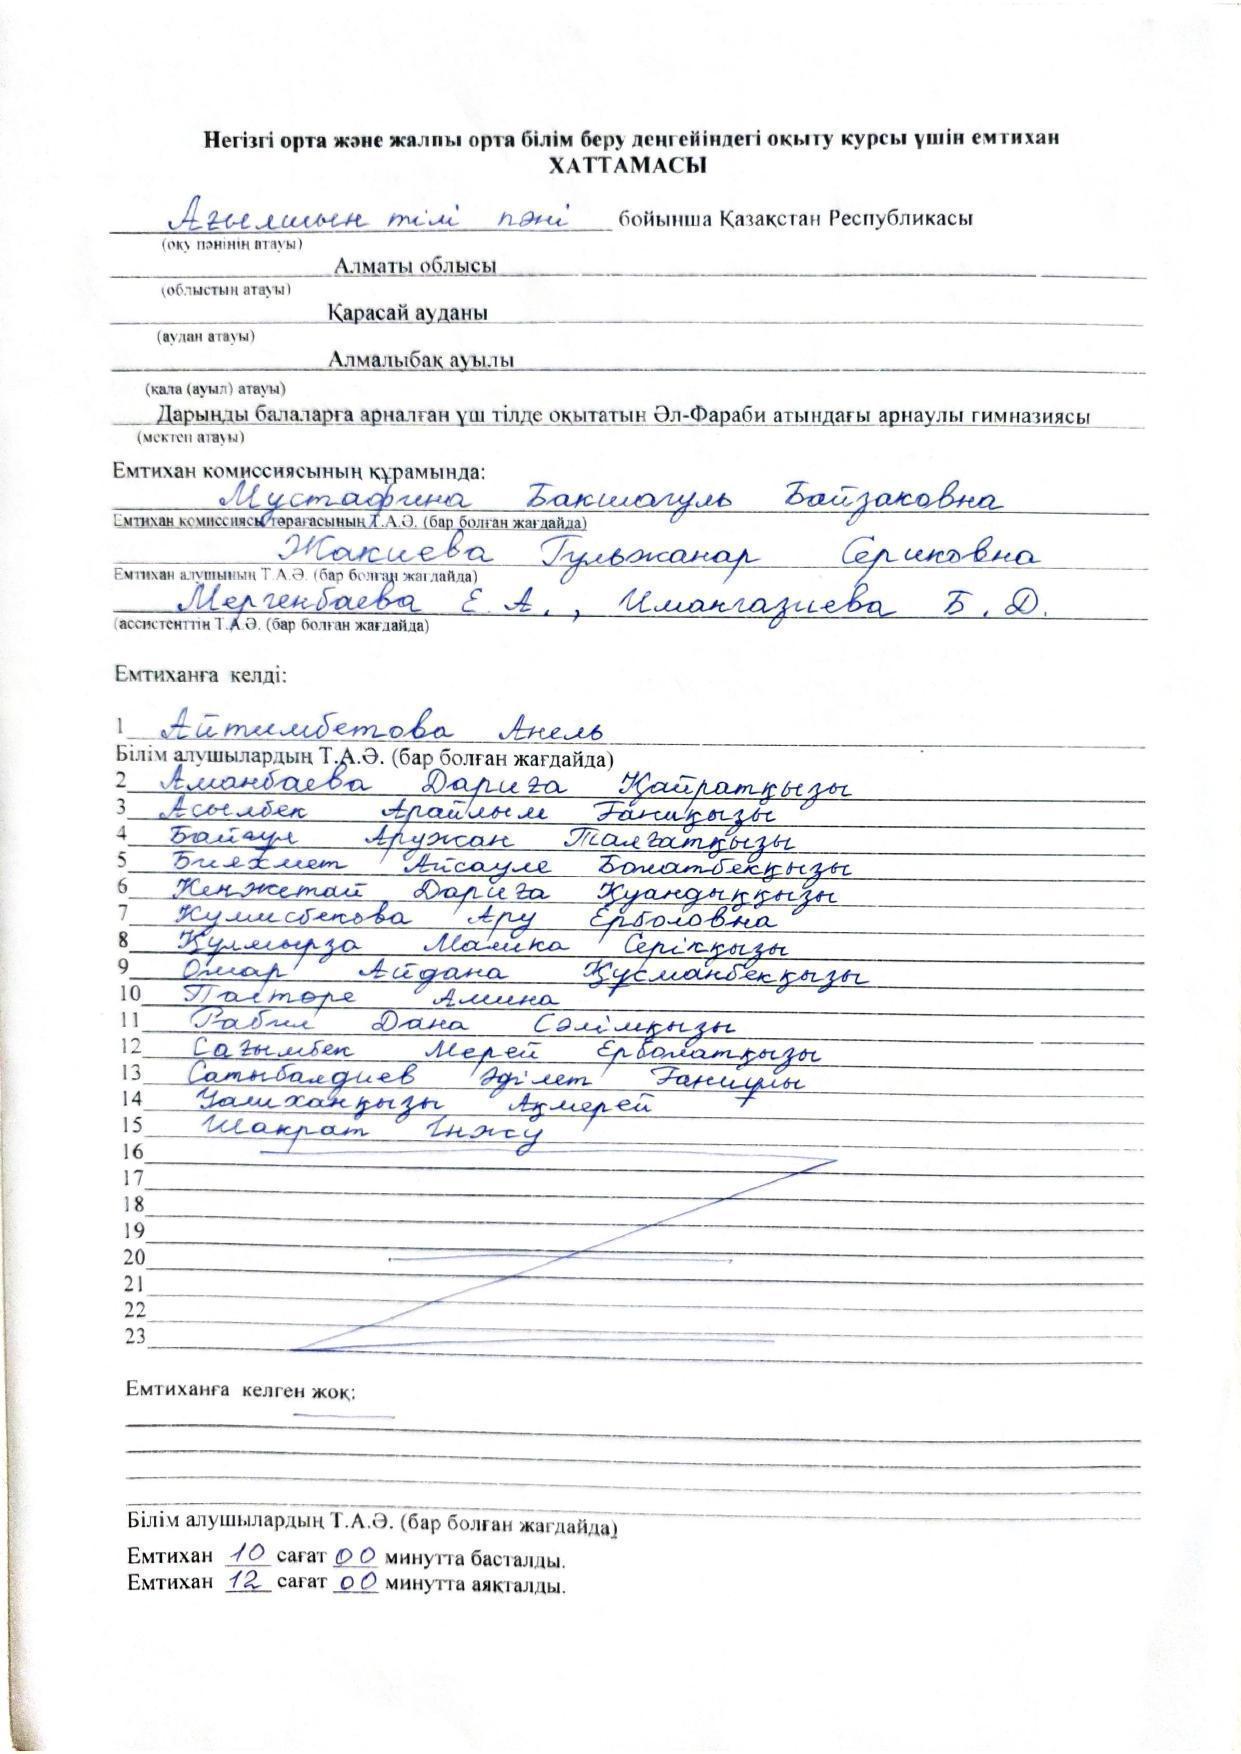 Негізгі орта және жалпы орта білім беру деңгейіндегі оқыту курсы үшін емтихан
ХАТТАМАСЫ
Ағылшын тілі пәні бойынша Қазақстан Республикасы
(оқу пәнінің атауы)
Алматы облысы
(облыстың атауы)
Қарасай ауданы
(аудан атауы)
Алмалыбақ ауылы
(қала (ауыл) атауы)
Дарынды балаларға арналған үш тілде оқытатын Әл-Фараби атындағы арнаулы гимназиясы
(мектеп атауы)
Емтихан комиссиясының құрамында:
Мустафина Бакшагуль Байзаковна
Емтихан комиссясы төрағасының Т.А.Ә. (бар болған жағдайда)
Жакиева Гульжанар Сериковна
Емтихан алушының Т.А.Ә. (бар болған жағдайда)
Мергенбаева Е. А., Имангазиева Б. Д.
(ассистенттін Т.А.Ә. (бар болған жағдайда)
Емтиханға келді:
1 Айтимбетова Анель
Білім алушылардың Т.А.Ә. (бар болған жағдайда)
2 Аманбаева Дариға Қайратқызы
3 Асылбек Арайлым Ғаниқызы
4 Байгул Аружан Талғатқызы
5 Биахмет Айсауле Болатбекқызы
6 Кенжетай Дариға Қуандыққызы
7 Кумисбекова Ару Ерболовна
8 Құлмырза Малика Серікқызы
9 Омар Айдана Құсманбекқызы
10 Пастөре Амина
11 Рабил Дана Сәлімқызы
12 Сағымбек Мерей Ерболатқызы
13 Сатыбалдиев Әділет Ғаниұлы
14 Уалиханқызы Ақмерей
15 Шакрат Інжу
16
17
18
19
20
21
22
23
Емтиханға келген жоқ:
Білім алушылардың Т.А.Ә. (бар болған жағдайда)
Емтихан 10 сағат 00 минутта басталды.
Емтихан 12 сағат 00 минутта аяқталды.